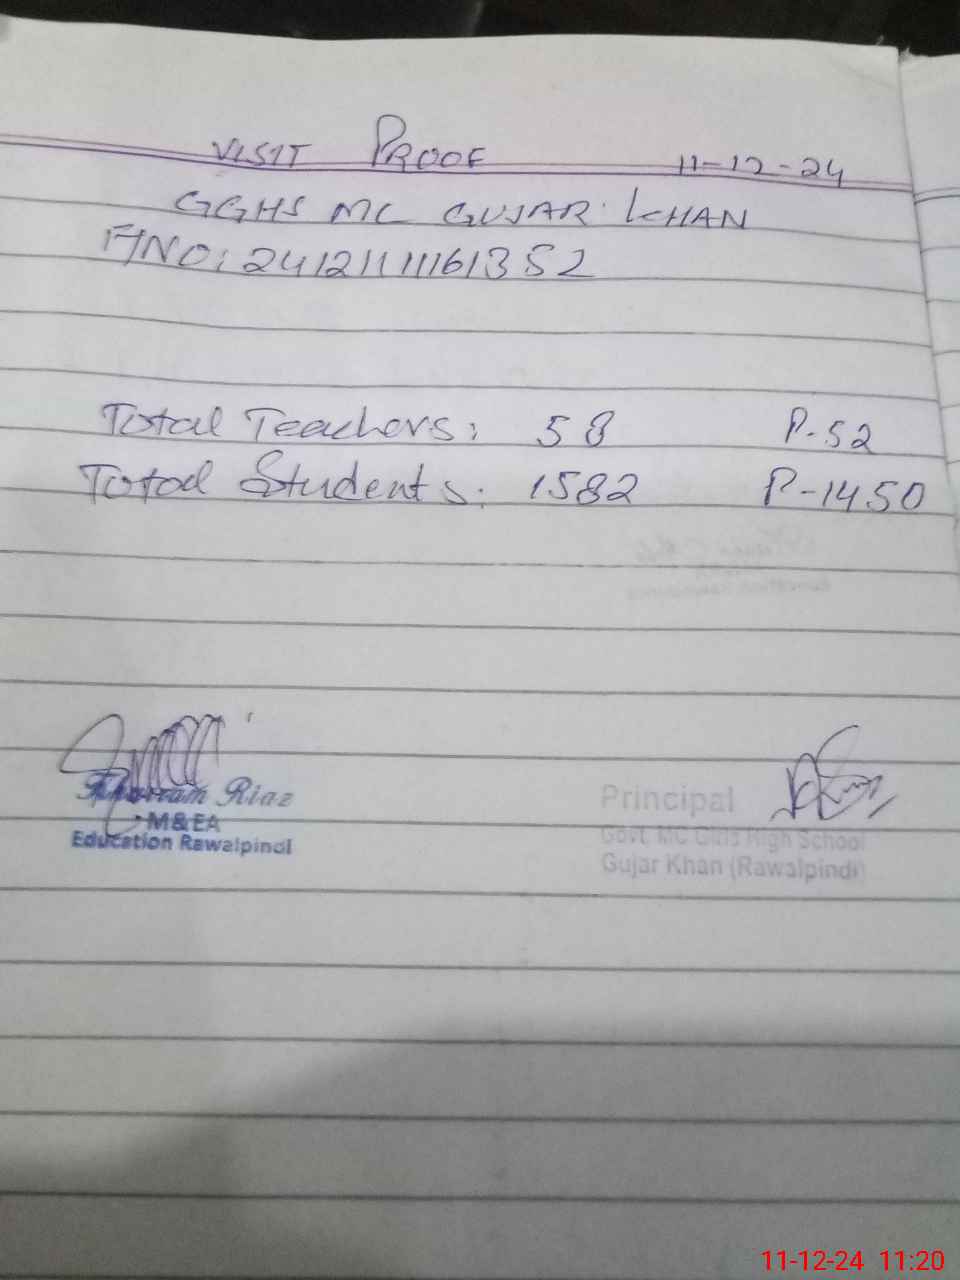 VISIT PROOF 11-12-24
GGHS MC GUJAR KHAN
F/NO: 24121111161352
Total Teachers: 58 P-52
Total Students: 1582 P-1450
Khurram Riaz
M&EA
Education Rawalpindi
Principal
Govt. MC Girls High School
Gujar Khan (Rawalpindi)
11-12-24 11:20